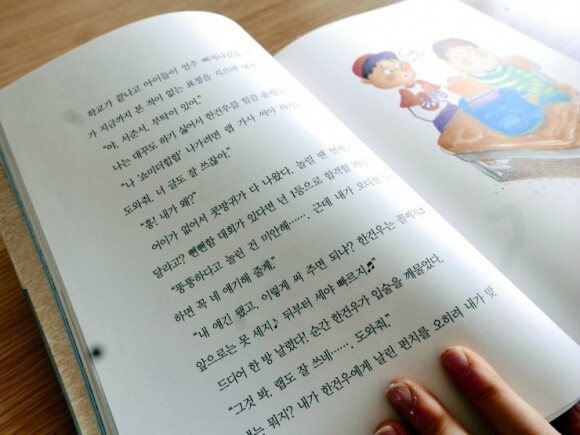 학교가 끝나고 아이들이 얼추 빠져나갔을
가 지금까지 본 적이 없는 표정을 지으며 내
"야, 서준서. 부탁이 있어."
나는 대꾸도 하기 싫어서 한진우를 힐끔 올려
"나 '쇼미더힙합' 나가려면 랩 가사 써야 하
도와줘. 너 글도 잘 쓰잖아."
"흥! 내가 왜?"
어이가 없어서 콧방귀가 다 나왔다. 놀릴 땐 언제
달라고? 뻔뻔함 대회가 있다면 넌 1등으로 합격할 거
"뚱뚱하다고 놀린 건 미안해……. 근데 내가 오디션
하면 꼭 네 얘기해 줄게."
"내 얘긴 됐고, 이렇게 써 주면 되나? 한진우는 꼴찌지♬
앞으로는 못 세지♪ 뒤부터 세야 빠르지♬"
드디어 한 방 날렸다! 순간 한진우가 입술을 깨물었다.
"그것 봐. 랩도 잘 쓰네……. 도와줘."
뭐지? 내가 한진우에게 날린 펀치를 오히려 내가 맞